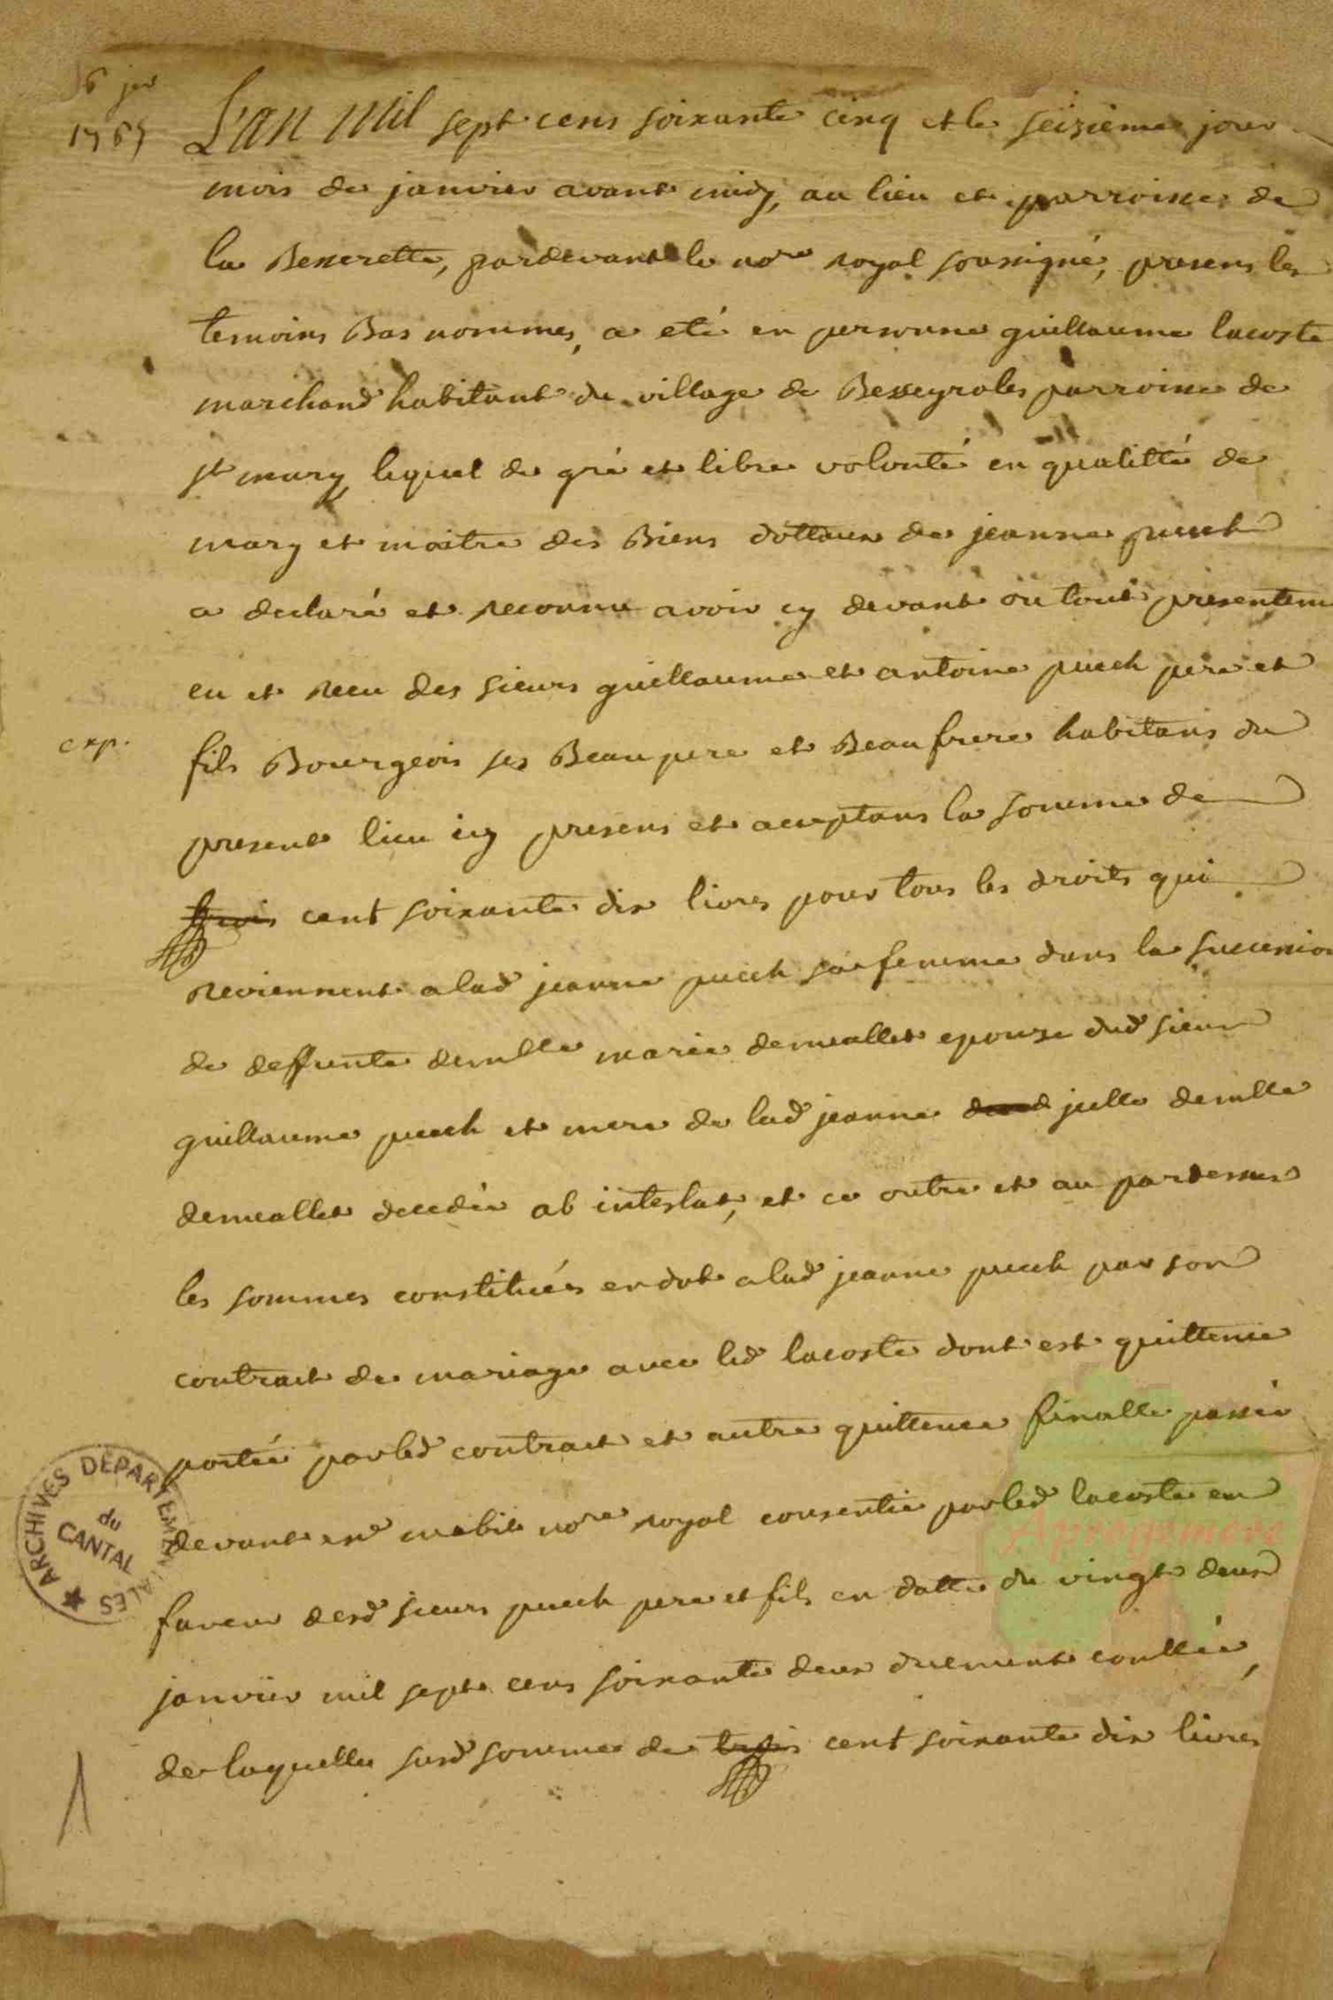 16 jer
1765
L'an mil sept cens soixante cinq et le seizieme jour
mois de janvier avant midy, au lieu et parroisse de
la Besserette, pardevant le nore royal soussigné, presens les
temoins Bas nommes, a eté en personne guillaume lacoste
marchand habitant du village de Besseyroles parroisse de
st mary lequel de gré et libre volonté en qualitté de
mary et maitre des Biens dottaux de jeanne puech
a declaré et reconnu avoir cy devant ou tout presentem
eu et recu des sieurs guillaume et antoine puech pere et
exp.
fils Bourgeois ses Beau pere et Beau frere habitans du
present lieu icy presens et acceptans la somme de
trois cent soixante dix livres pour tous les droits qui
reviennent a lad jeanne puech sa femme dans la succession
de deffunte demlle marie demallet epouze dud sieur
guillaume puech et mere de lad jeanne jcelle demlle
demallet decedée ab intestat, et ce outre et au pardessus
les sommes constituées en dot a lad jeanne puech par son
contract de mariage avec led lacoste dont est quittence
portée par led contract et autre quittence finalle passée
devant nore royal consentie par led lacoste en
faveur desd sieurs puech pere et fils en datte du vingt deux
janvier mil sept cens soixante deux duement conllée,
de laquelle susd somme de trois cent soixante dix livres
ARCHIVES DEPARTEMENTALES
du
CANTAL
Aprogemere